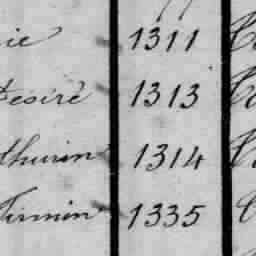 ie 1311
Desiré 1313
thurin 1314
Firmin 1335